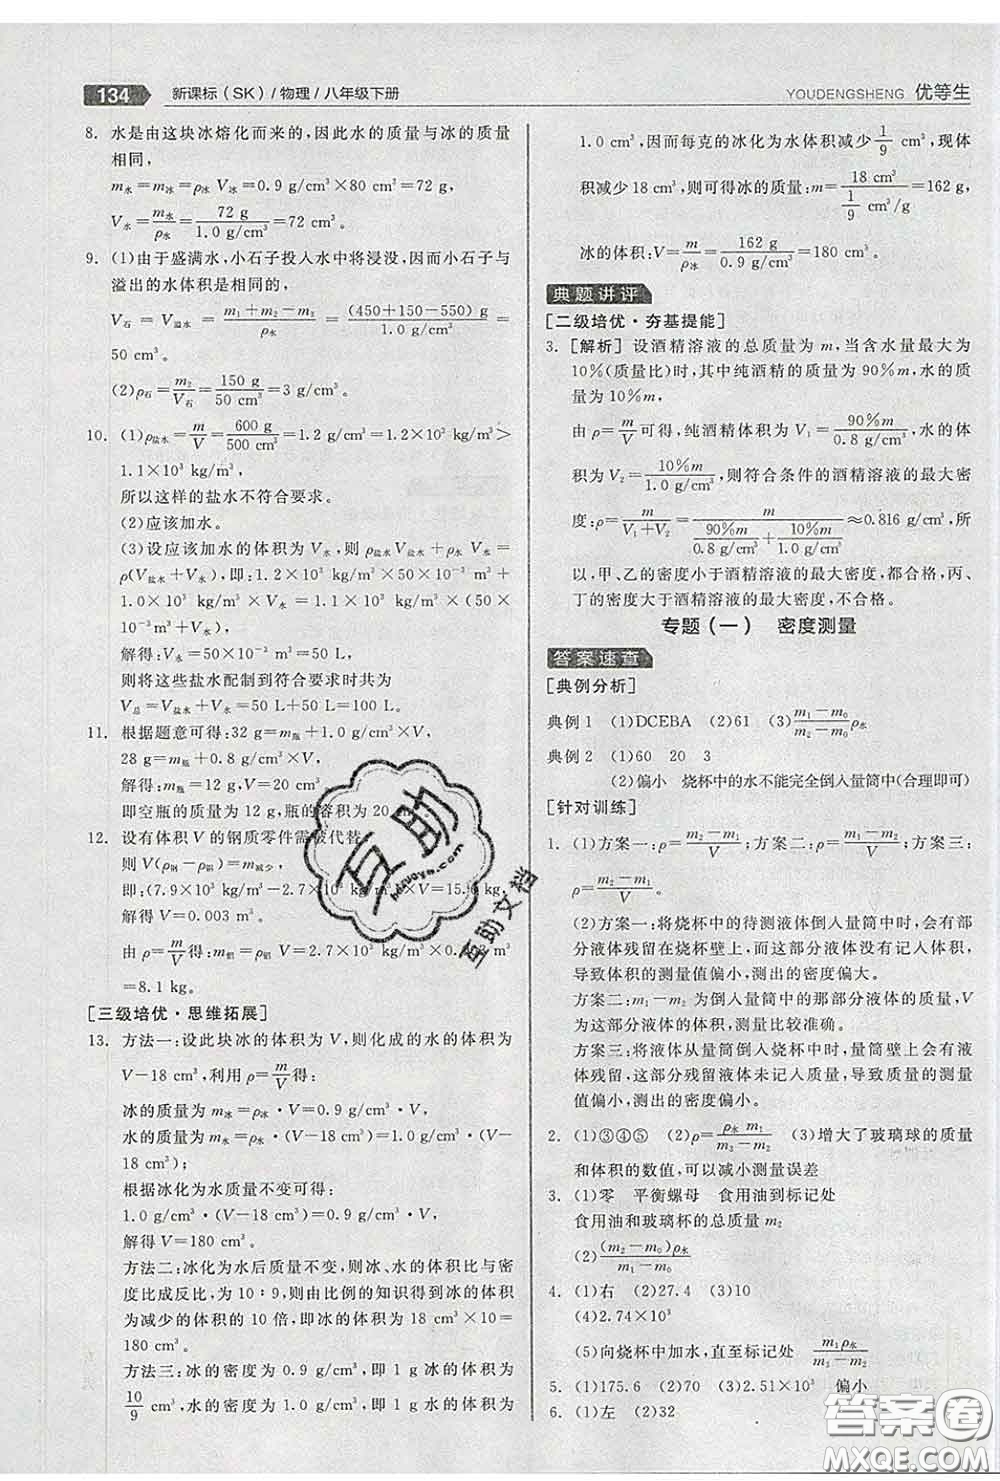 134 新课标(SK)/物理/八年级下册
YOUDENGSHENG 优等生
8. 水是由这块冰熔化而来的,因此水的质量与冰的质量
相同,
m水=m冰=ρ冰 V冰=0.9 g/cm³×80 cm³=72 g,
V水=m水/ρ水=72 g/1.0 g/cm³=72 cm³。
9. (1)由于盛满水,小石子投入水中将浸没,因而小石子与
溢出的水体积是相同的,
V石=V溢水=(m₁+m₂-m₃)/ρ水=(450+150-550) g/1.0 g/cm³=
50 cm³。
(2)ρ石=m₂/V石=150 g/50 cm³=3 g/cm³。
10. (1)ρ盐水=m/V=600 g/500 cm³=1.2 g/cm³=1.2×10³ kg/m³>
1.1×10³ kg/m³,
所以这样的盐水不符合要求。
(2)应该加水。
(3)设应该加水的体积为 V水,则 ρ盐水V盐水+ρ水 V水=
ρ(V盐水+V水),即:1.2×10³ kg/m³×50×10⁻³ m³+
1.0×10³ kg/m³×V水=1.1×10³ kg/m³×(50×
10⁻³ m³+V水),
解得:V水=50×10⁻³ m³=50 L,
则将这些盐水配制到合格时共为
V总=V盐水+V水=50 L+50 L=100 L。
11. 根据题意可得:32 g=m瓶+1.0 g/cm³×V,
28 g=m瓶+0.8 g/cm³×V;
解得:m瓶=12 g,V=20 cm³;
即空瓶的质量为 12 g,瓶的容积为 20
12. 设有体积 V 的钢质零件需被代替,
则 V(ρ钢-ρ铝)=m减少,
即:(7.9×10³ kg/m³-2.7×10³ kg/m³)×V=15.6 kg,
解得 V=0.003 m³。
由 ρ=m/V得:m铝=2.7×10³ kg/m³×0.003 m³
=8.1 kg。
[三级培优·思维拓展]
13. 方法一:设此块冰的体积为 V,则化成的水的体积为
V-18 cm³,利用 ρ=m/V得:
冰的质量为 m冰=ρ冰·V=0.9 g/cm³·V,
水的质量为 m水=ρ水·(V-18 cm³)=1.0 g/cm³·
(V-18 cm³);
根据冰化为水质量不变可得:
1.0 g/cm³·(V-18 cm³)=0.9 g/cm³·V,
解得 V=180 cm³。
方法二:冰化为水后质量不变,则冰、水的体积与密
度成反比,为 10∶9,由比例的知识则得冰化成水体
积减少的体积的 10 倍,即冰的体积为 10×18 cm³=
180 cm³。
方法三:冰的密度为 0.9 g/cm³,即 1 g 冰的体积为
10/9 cm³,水的密度为 1.0 g/cm³,即 1 g 水的体积为
1.0 cm³,因而每克的冰化为水体积减少1/9 cm³,现体
积减少 18 cm³,则可得冰的质量:m=18 cm³/(1/9 cm³/g)=162 g,
冰的体积:V=m/ρ冰=162 g/0.9 g/cm³=180 cm³。
典题讲评
[二级培优·夯基提能]
3. [解析] 设酒精溶液的总质量为 m,当含水量最大为
10%(质量比)时,其中纯酒精的质量为 90%m,水的质
量为 10%m。
由 ρ=m/V可得,纯酒精体积为 V₁=90%m/0.8 g/cm³,水的体
积为 V₂=10%m/1.0 g/cm³,则符合条件的酒精溶液的最大密
度:ρ=m/(V₁+V₂)=m/(90%m/0.8 g/cm³+10%m/1.0 g/cm³)≈0.816 g/cm³,所
以,甲、乙的密度小于酒精溶液的最大密度,都合格,丙、
丁的密度大于酒精溶液的最大密度,不合格。
专题(一) 密度测量
答案速查
[典例分析]
典例 1 (1)DCEBA (2)61 (3)(m₁-m₀)/(m₂-m₀)ρ水
典例 2 (1)60 20 3
(2)偏小 烧杯中的水不能完全倒入量筒中(合理即可)
[针对训练]
1. (1)方案一:ρ=(m₂-m₁)/V;方案二:ρ=(m₁-m₂)/V;方案三:
ρ=(m₂-m₁)/V。
(2)方案一:将烧杯中的待测液体倒入量筒中时,会有部
分液体残留在烧杯壁上,而这部分液体没有记入体积,
导致体积的测量值偏小,测出的密度偏大。
方案二:m₁-m₂ 为倒入量筒中的那部分液体的质量,V
为这部分液体的体积,测量比较准确。
方案三:将液体从量筒倒入烧杯时,量筒壁上会有液
体残留,这部分残留液体未记入质量,导致质量的测量
值偏小,测出的密度偏小。
2. (1)③④⑤ (2)ρ=ρ水 m₁/(m₂-m₃) (3)增大了玻璃球的质量
和体积的数值,可以减小测量误差
3. (1)零 平衡螺母 食用油到标记处
食用油和玻璃杯的总质量 m₂
(2)(m₂-m₀)ρ水/(m₁-m₀)
4. (1)右 (2)27.4 (3)10
(4)2.74×10³
(5)向烧杯中加水,直至标记处 m₁ρ水/(m₁-m₂)
5. (1)175.6 (2)70 (3)2.51×10³ 偏小
6. (1)左 (2)32
互助
huzuyw.com
互助文档
答案圈
MXQE.COM